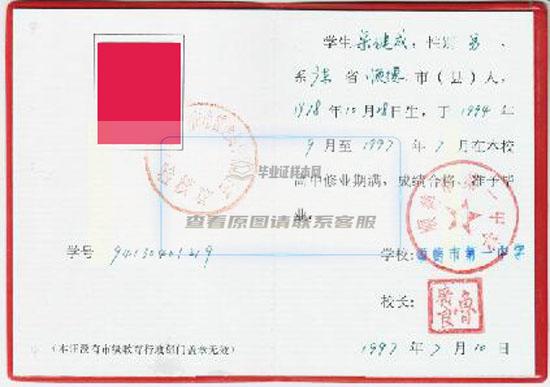 学生 梁健成，性别 男 、
系 广东 省 顺德 市（县）人，
1978 年 10 月 28 日生，于 1994 年
9 月至 1997 年 7 月在本校
高中修业期满，成绩合格，准予毕
业。
毕业证样本网
查看原图请联系客服
学号 94130401219
学校：市第一中学
校长：
（本证没有市级教育行政部门盖章无效）
1997 年 7 月 10 日